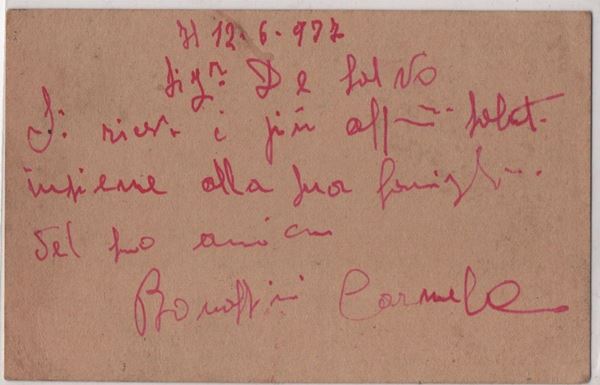 li 12-6-937
Sigr. De Salvo
Si riceva i più aff... Saluti
insieme alla sua famigli...
del suo amico
Carmelo